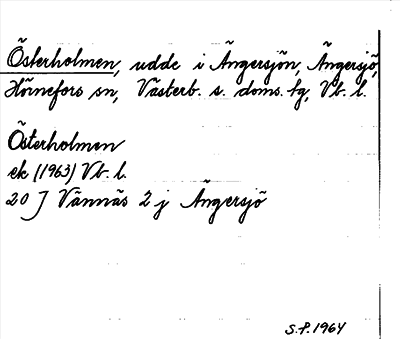 Österholmen, udde i Ängersjön, Ängersjö,
Hörnefors sn, Västerb. s. doms. tg, Vb. l.
Österholmen
ek (1963) Vb. l.
20 J Vännäs 2 j Ängersjö
S.P. 1964